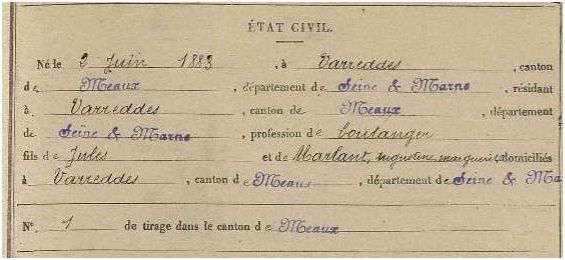 ÉTAT CIVIL.
Né le 2 Juin 1883, à Varreddes, canton
de Meaux, département de Seine & Marne, résidant
à Varreddes, canton de Meaux, département
de Seine & Marne, profession de boulanger
fils de Jules et de Marlant, augustine, domiciliés
à Varreddes, canton de Meaux, département de Seine & Ma
N°. 1 de tirage dans le canton de Meaux